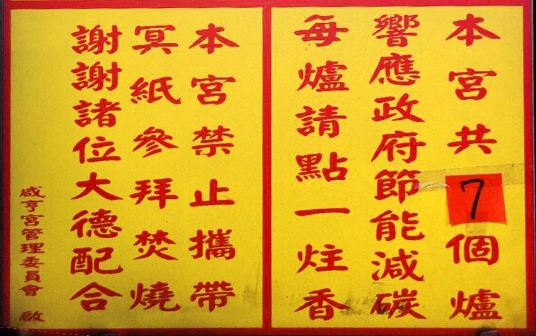 本宮共7個爐
響應政府節能減碳
每爐請點一炷香
本宮禁止攜帶
冥紙參拜焚燒
謝謝諸位大德配合
咸亨宮管理委員會 啟